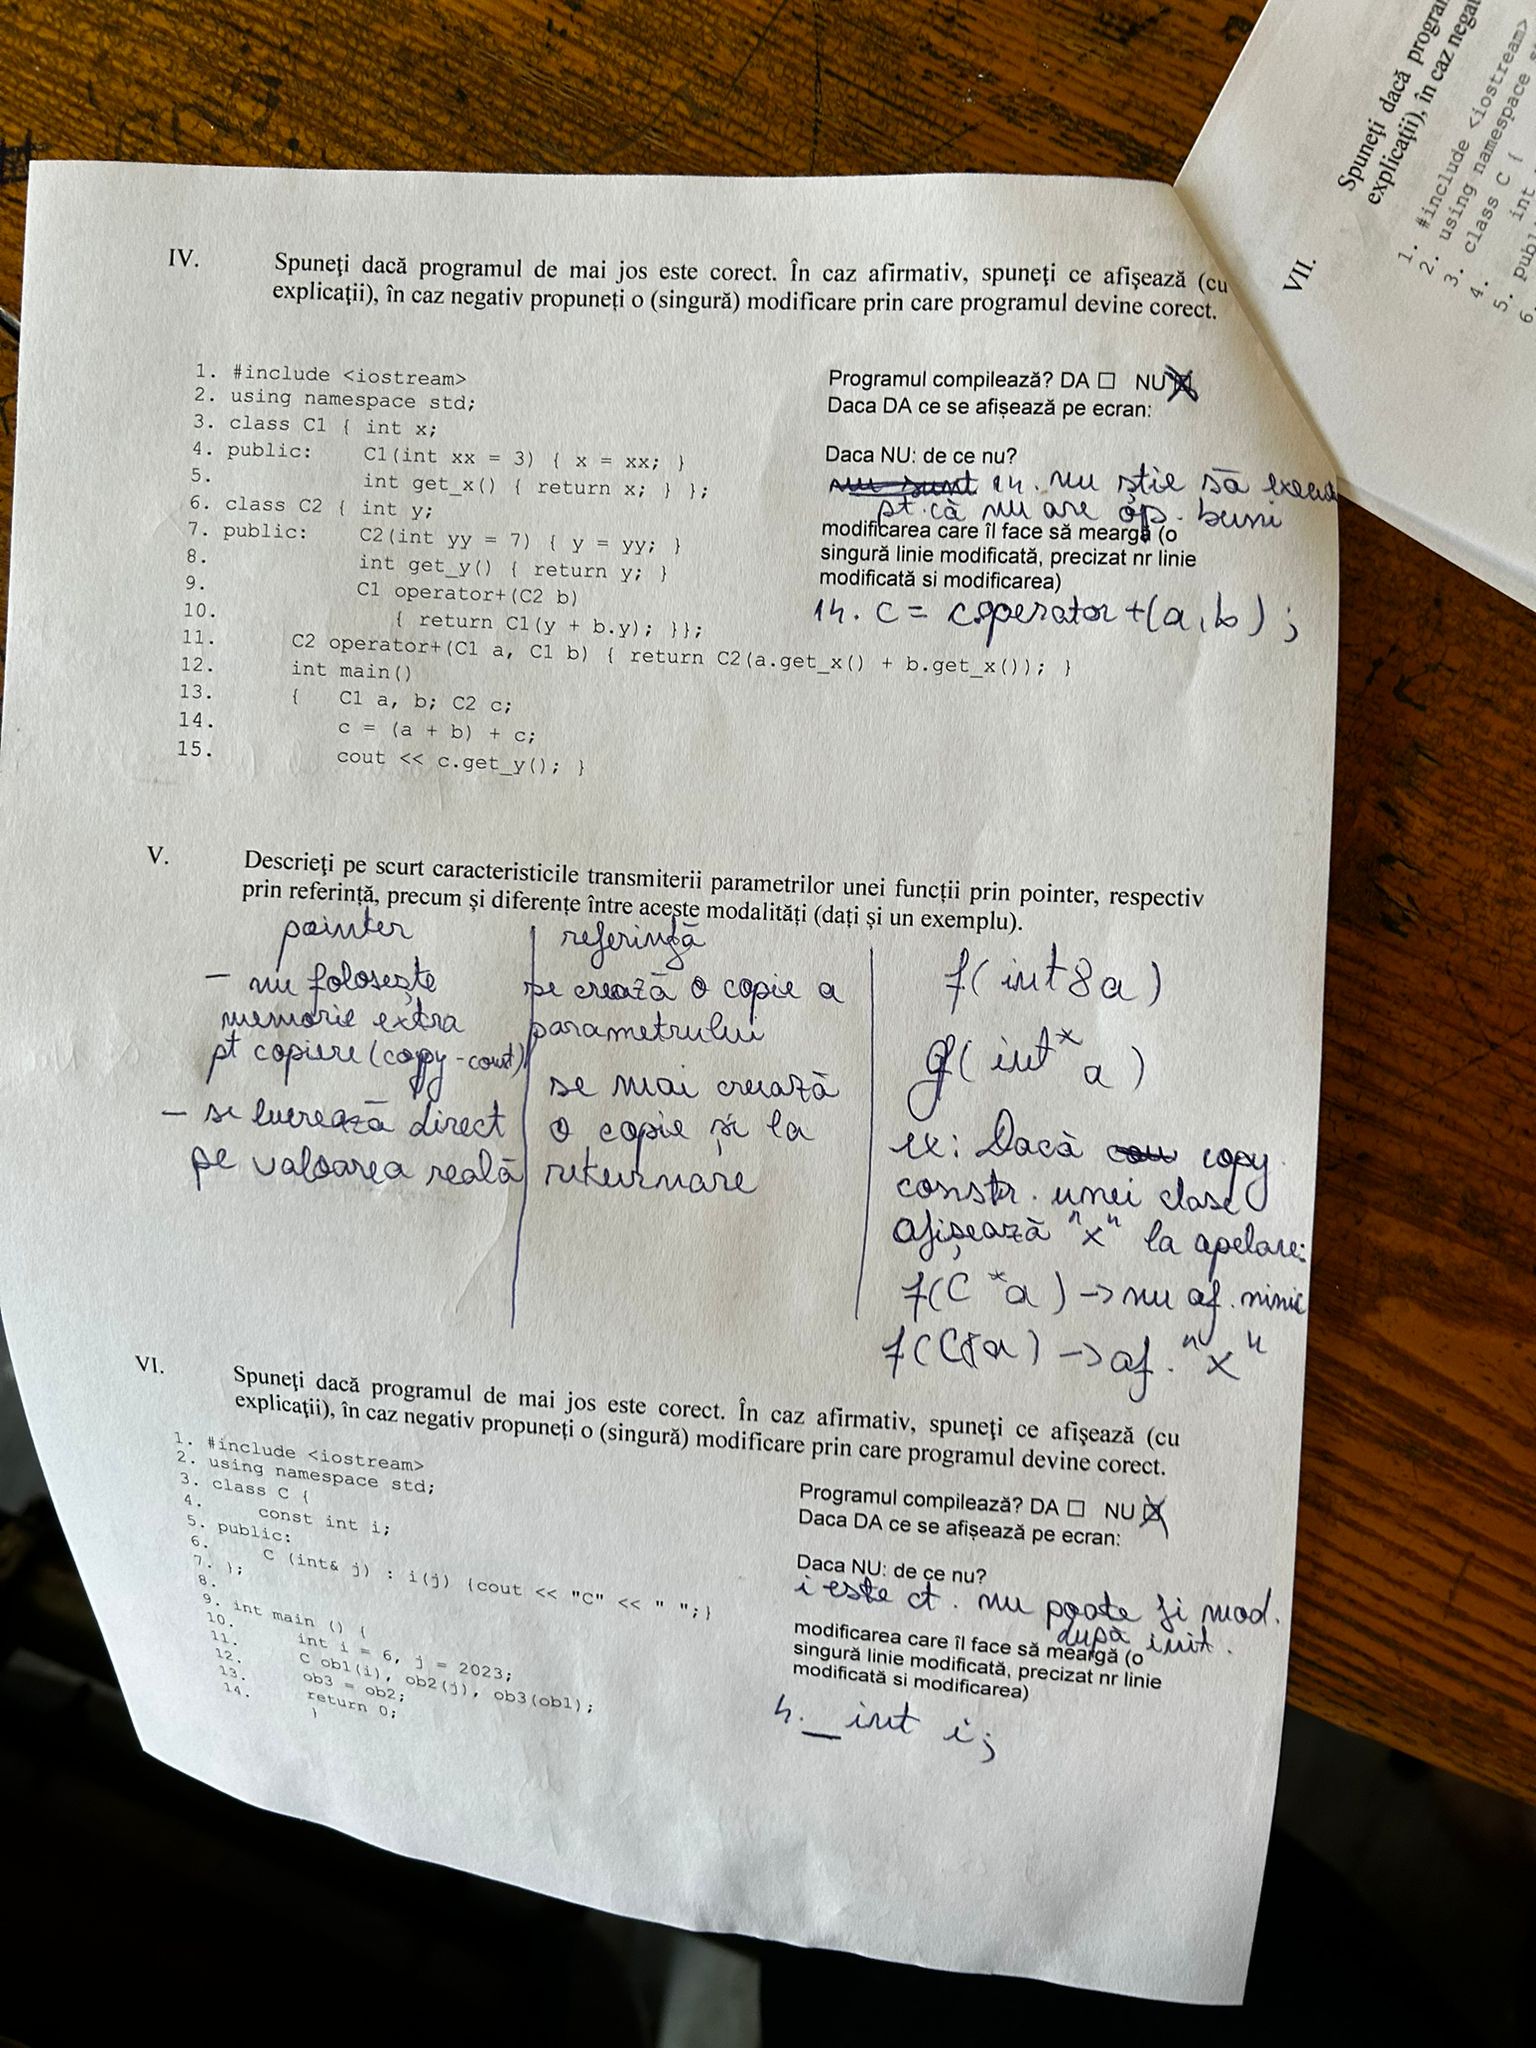 IV. Spuneţi dacă programul de mai jos este corect. În caz afirmativ, spuneţi ce afişează (cu
explicaţii), în caz negativ propuneţi o (singură) modificare prin care programul devine corect.
1. #include <iostream>
2. using namespace std;
3. class C1 { int x;
4. public: C1(int xx = 3) { x = xx; }
5. int get_x() { return x; } };
6. class C2 { int y;
7. public: C2(int yy = 7) { y = yy; }
8. int get_y() { return y; }
9. C1 operator+(C2 b)
10. { return C1(y + b.y); }};
11. C2 operator+(C1 a, C1 b) { return C2(a.get_x() + b.get_x()); }
12. int main()
13. { C1 a, b; C2 c;
14. c = (a + b) + c;
15. cout << c.get_y(); }
Programul compilează? DA ☐ NU ☒
Daca DA ce se afișează pe ecran:
Daca NU: de ce nu?
14. nu știe să
pt. că nu are op. buni
modificarea care îl face să meargă (o
singură linie modificată, precizat nr linie
modificată si modificarea)
14. c = operator +(a,b);
V. Descrieţi pe scurt caracteristicile transmiterii parametrilor unei funcţii prin pointer, respectiv
prin referinţă, precum şi diferenţe între aceste modalităţi (daţi şi un exemplu).
pointer
- nu folosește
memorie extra
pt copiere (copy-const)
- se lucrează direct
pe valoarea reală
referință
se crează o copie a
parametrului
se mai crează
o copie și la
returnare
f(int &a)
g(int *a)
ex: Dacă copy
constr. unei clase
afișează "x" la apelare:
f(C *a) -> nu af. nimic
f(C&a) -> af. "x"
VI. Spuneţi dacă programul de mai jos este corect. În caz afirmativ, spuneţi ce afişează (cu
explicaţii), în caz negativ propuneţi o (singură) modificare prin care programul devine corect.
1. #include <iostream>
2. using namespace std;
3. class C {
4. const int i;
5. public:
6. C (int& j) : i(j) {cout << "C" << " ";}
7. };
8.
9. int main () {
10. int i = 6, j = 2023;
11. C ob1(i), ob2(j), ob3(ob1);
12. ob3 = ob2;
13. return 0;
14. }
Programul compilează? DA ☐ NU ☒
Daca DA ce se afișează pe ecran:
Daca NU: de ce nu?
i este ct. nu poate fi mod.
după init.
modificarea care îl face să meargă (o
singură linie modificată, precizat nr linie
modificată si modificarea)
4. _ int i;
VII. Spuneţi dacă
explicaţii), în caz
1. #include <iostream>
2. using namespace
3. class C {
4. int
5.
6.